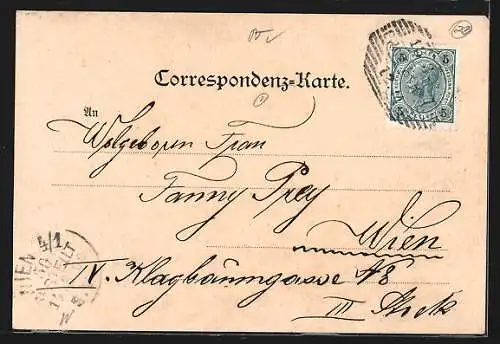 Correspondenz-Karte.
An
Wolgeboren Frau
Fanny Prey
Wien
IV. Klagbaumgasse 18
III Stock
5 5
4/1
WIEN